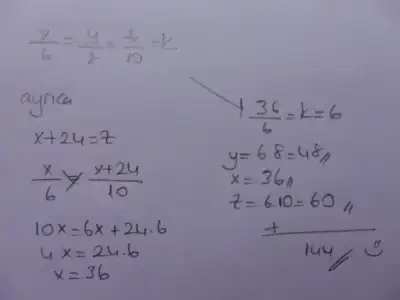 x/6 = y/8 = z/10 = k
ayrıca
x+24=z
x/6 = x+24/10
10x=6x+24.6
4x=24.6
x=36
36/6=k=6
y=6.8=48
x=36
z=6.10=60
+
144